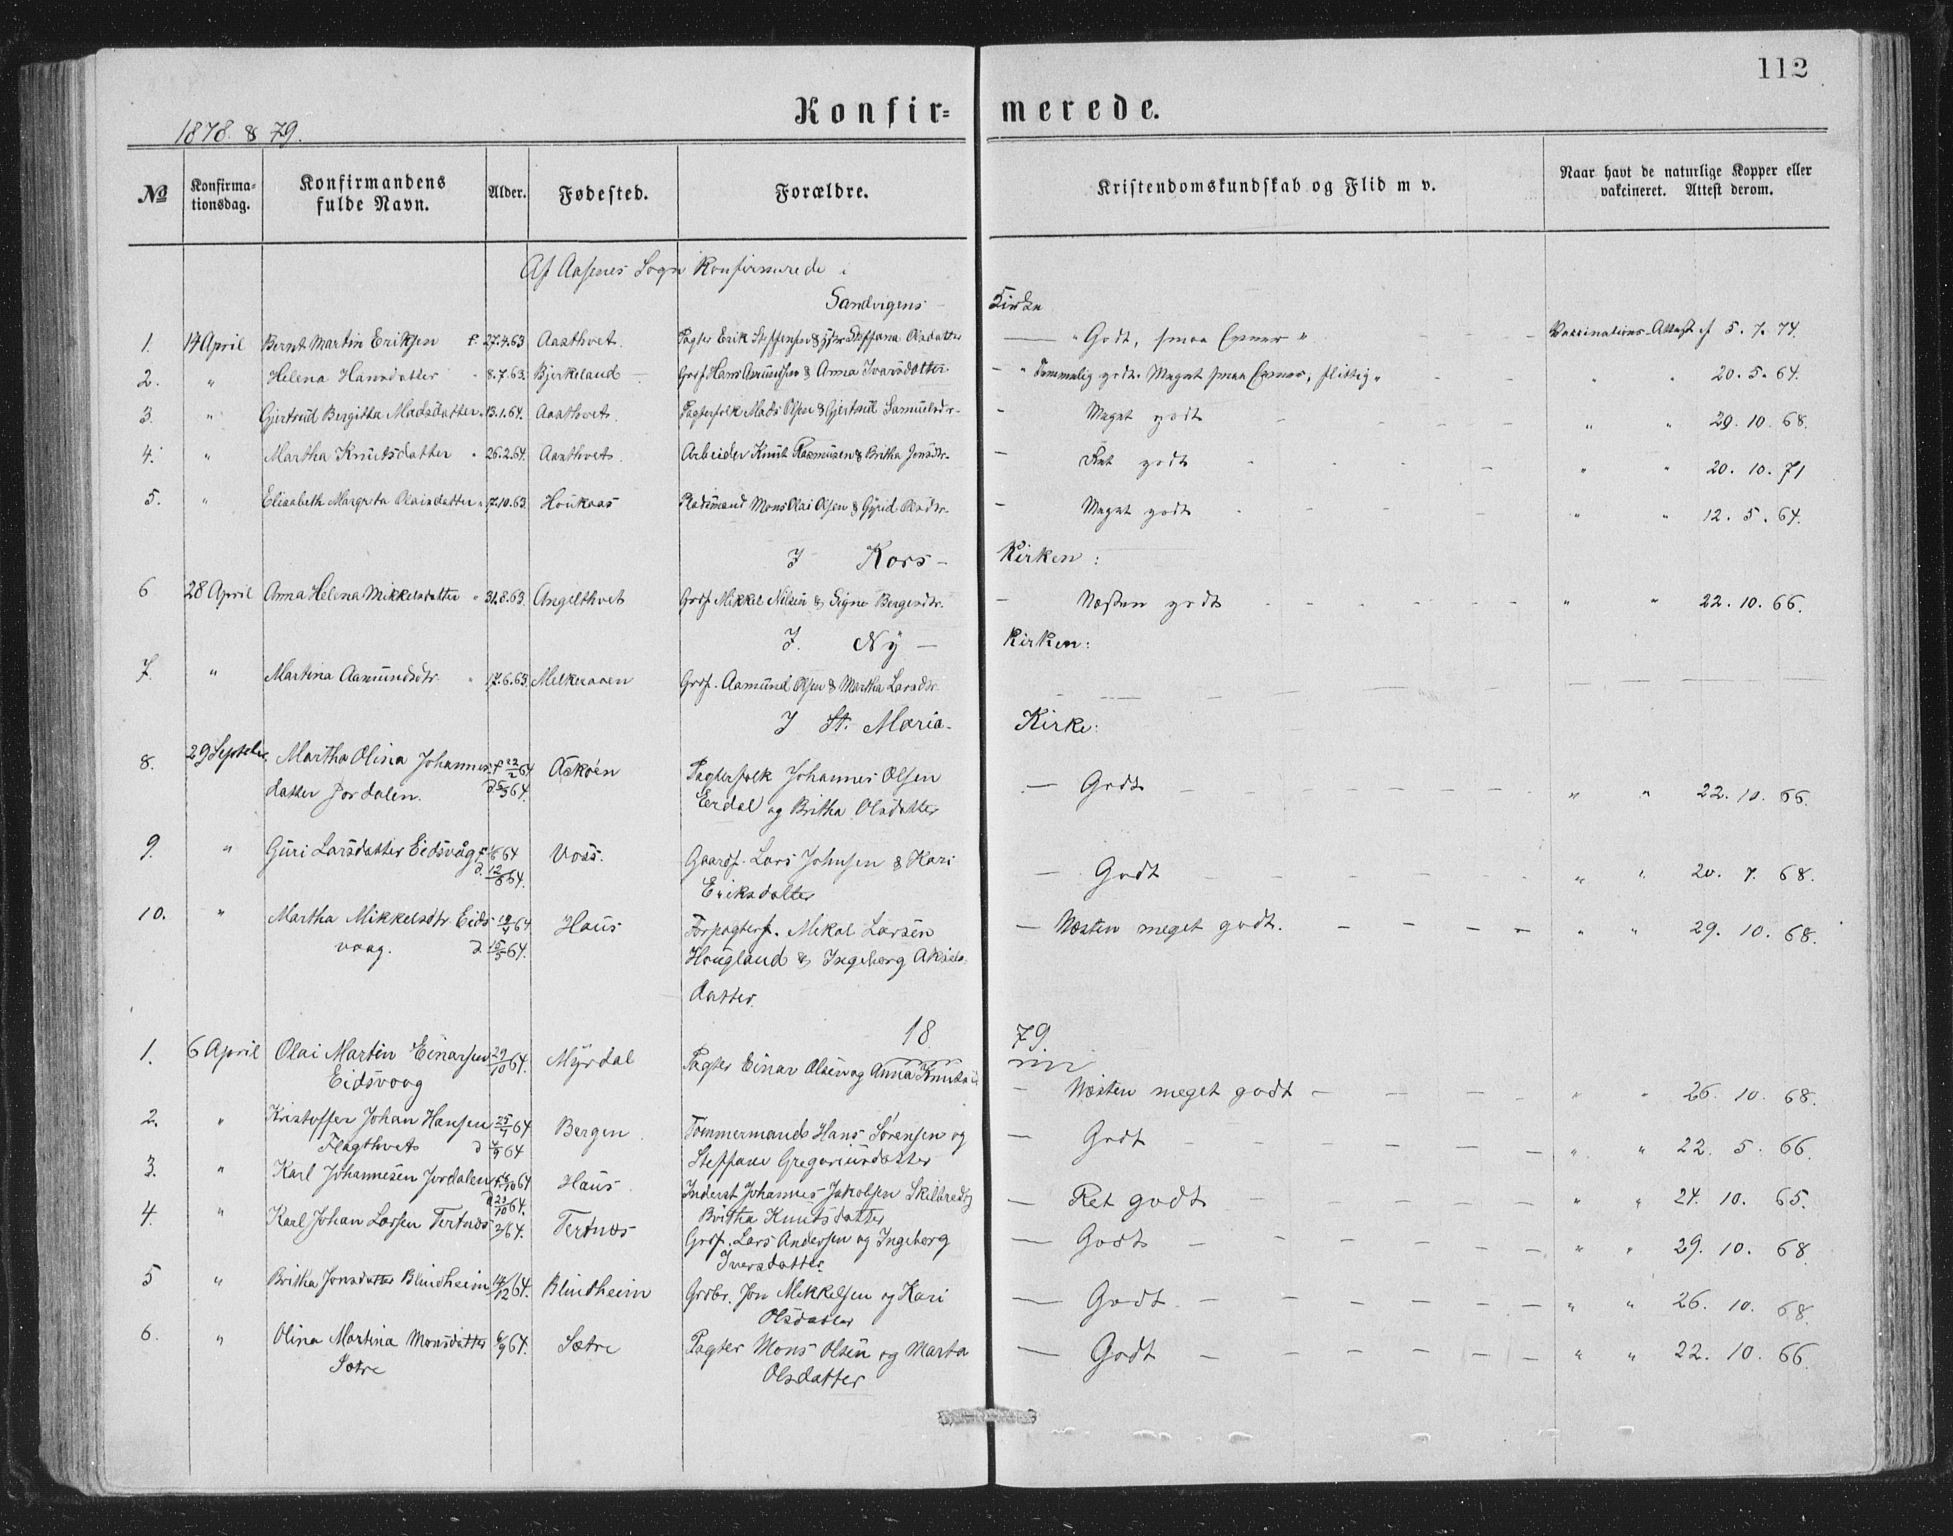 112
Konfir= merede.
1878. & 79.
№ Konfirma=tionsdag. Konfirmandens fulde Navn. Alder. Fødested. Forældre. Kristendomskundskab og Flid m v. Naar havt de naturlige Kopper eller vakcineret. Attest derom.
Af Aasenes Sogn Konfirmerede i
Sandvigens Kirke
1. 14 April Bernt Martin Eriksen f. 27.4.63 Aasthvet. Pagter Erik Steffensen & Steffana Olsdatter — "Godt, smaa Evner" — Vaccinations-Attest af 5. 7. 74.
2. " Helena Hansdatter " 8.7.63. Bjerkeland Grdf Hans Asmundsen & Anna Ivarsdatter — "Temmelig godt. Meget smaa Evner, flittig" " " 20. 5. 64.
3. " Gjertrud Bergitha Madsdatter " 13.1.64. Aasthvet. Pagterfolk Mads Olsen & Gjertrud Samuelsdr. — Meget godt " " 29. 10. 68.
4. " Martha Knutsdatter " 26.2.64. Aasthvet. Arbeider Knut Rasmusen & Britha Jonsdr. — Ret godt " " 20. 10. 71
5. " Elisabeth Margreta Olaisdatter " 7.10.63. Houkaas Pladsmand Mons Olai Olsen & Gyrid Olsdr. — Meget godt " " 12. 5. 64.
I Kors- Kirken:
6 28 April Anna Helena Mikkelsdatter " 31.8.63. Angelthvet Grdf Mikkel Nilsen & Signe Bergesdtr. — Næsten godt " " 22. 10. 66.
I. Ny — Kirken:
7. " Martina Aamundsdtr. " 17.6.63. Melkeraaen Grdf. Aamund Olsen & Martha Larsdtr.
I St. Maria- Kirke:
8. 29 Septeber Martha Olina Johannes- f 22/2 64 Askøen Pagterfolk Johannes Olsen — Godt " " 22. 10. 66.
datter Jordalen. 64. Eirdal og Britha Olsdatter
9. " Guri Larsdatter Eidsvåg f. 64 Voss. Gaardf. Lars Johnsen & Kari — Godt " " 20. 7. 68.
d. 12/6 64. Eriksdatter
10. " Martha Mikkelsdtr. Eids- 64 Haus Forpagterf. Mikal Larsen — Næsten meget godt. " " 29. 10. 68.
vaag. d. 15/5 64. Hougland & Ingeborg Aksels-
datter.
18 79.
1. 6 April Olai Martin Einarsen 29/10 64. Myrdal Pagter Einar Olsen og Anna Knutsd — Næsten meget godt " " 26. 10. 68.
Eidsvaag
2. " Kristoffer Johan Hansen 64 Bergen Tømmermand Hans Sørensen og — Godt " " 22. 5. 66.
Flagthvet d 64 Steffane Gregoriusdatter
3. " Karl Johannesen Jordalen 64 Haus Inderst Johannes Jakobsen Skilbred og — Ret godt " " 24. 10. 65.
d 23/10 64. Britha Knutsdatter
4. " Karl Johan Larsen Tertnæs 64. Tertnæs Grdf. Lars Andersen og Ingeborg — Godt " " 29. 10. 68
Iversdatter
5 " Britha Jonsdatter Blindheim 14/12 64. Blindheim Grdbr. Jon Mikkelsen og Kari — Godt " " 26. 10. 68.
Olsdatter
6. " Olina Martina Monsdatter 6/9 64. Sætre Pagter Mons Olsen og Marta — Godt " " 22. 10. 66.
Sætre Olsdatter